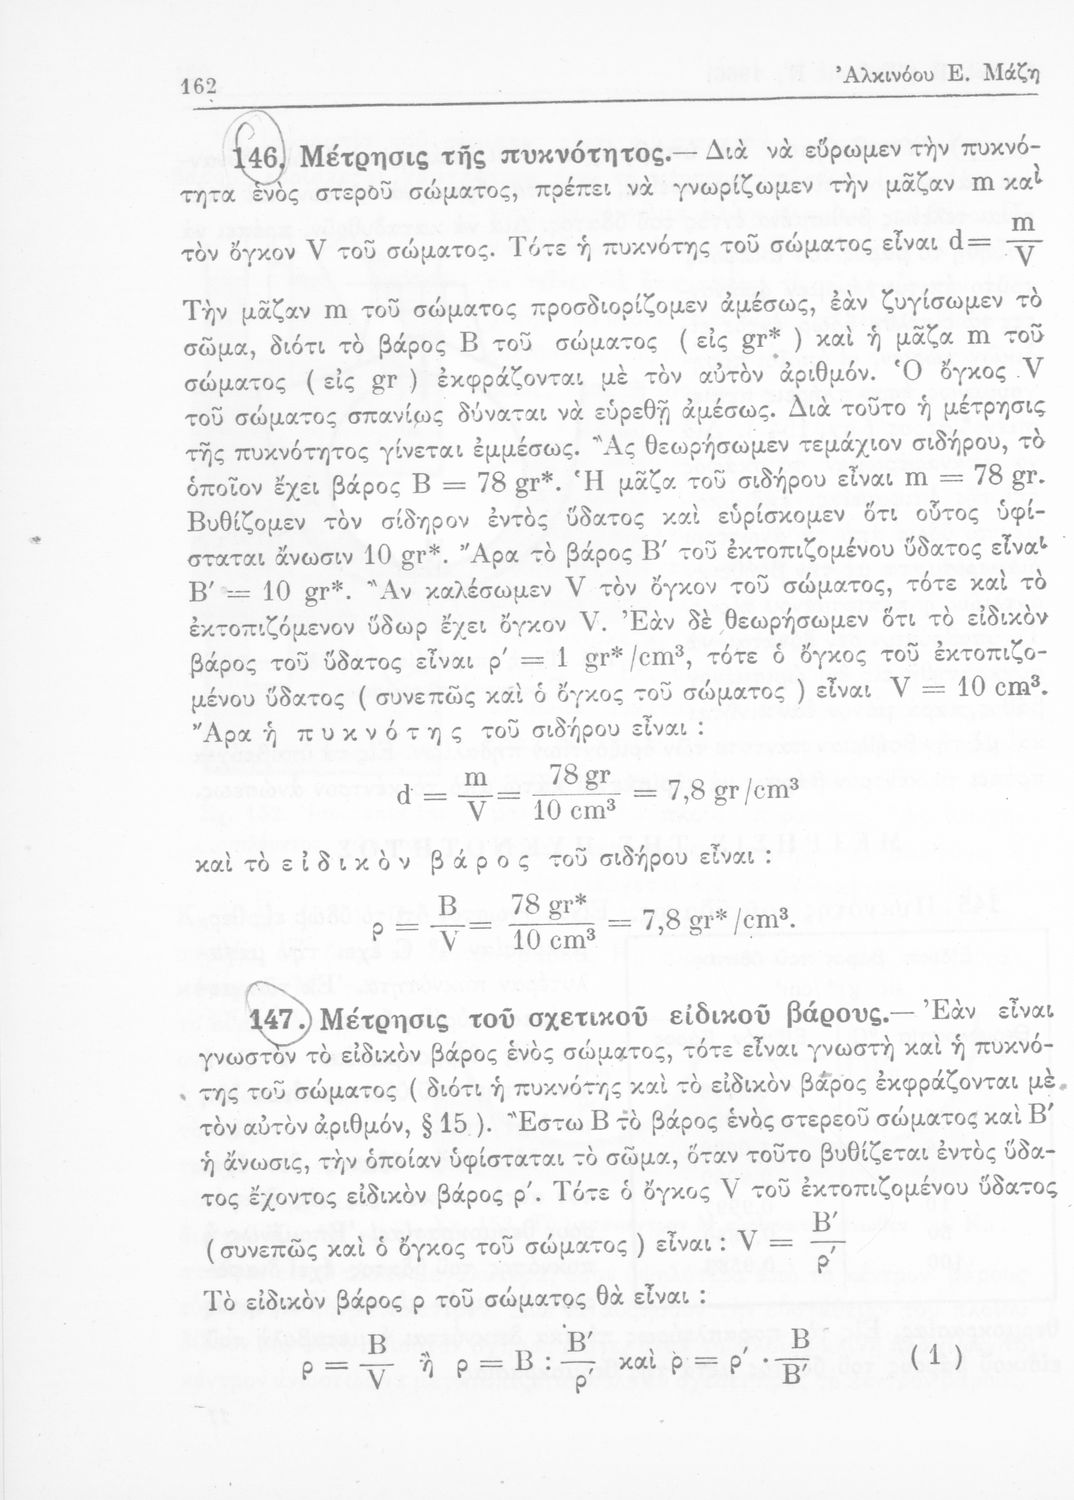 162
Ἀλκινόου Ε. Μάζη
146. Μέτρησις τῆς πυκνότητος.— Διὰ νὰ εὕρωμεν τὴν πυκνό-
τητα ἑνὸς στεροῦ σώματος, πρέπει νὰ γνωρίζωμεν τὴν μᾶζαν m καὶ
τὸν ὄγκον V τοῦ σώματος. Τότε ἡ πυκνότης τοῦ σώματος εἶναι d = m/V
Τὴν μᾶζαν m τοῦ σώματος προσδιορίζομεν ἀμέσως, ἐὰν ζυγίσωμεν τὸ
σῶμα, διότι τὸ βάρος Β τοῦ σώματος ( εἰς gr* ) καὶ ἡ μᾶζα m τοῦ
σώματος ( εἰς gr ) ἐκφράζονται μὲ τὸν αὐτὸν ἀριθμόν. Ὁ ὄγκος V
τοῦ σώματος σπανίως δύναται νὰ εὑρεθῇ ἀμέσως. Διὰ τοῦτο ἡ μέτρησις
τῆς πυκνότητος γίνεται ἐμμέσως. Ἂς θεωρήσωμεν τεμάχιον σιδήρου, τὸ
ὁποῖον ἔχει βάρος Β = 78 gr*. Ἡ μᾶζα τοῦ σιδήρου εἶναι m = 78 gr.
Βυθίζομεν τὸν σίδηρον ἐντὸς ὕδατος καὶ εὑρίσκομεν ὅτι οὗτος ὑφί-
σταται ἄνωσιν 10 gr*. Ἄρα τὸ βάρος Β′ τοῦ ἐκτοπιζομένου ὕδατος εἶναι
Β′ = 10 gr*. Ἂν καλέσωμεν V τὸν ὄγκον τοῦ σώματος, τότε καὶ τὸ
ἐκτοπιζόμενον ὕδωρ ἔχει ὄγκον V. Ἐὰν δὲ θεωρήσωμεν ὅτι τὸ εἰδικὸν
βάρος τοῦ ὕδατος εἶναι ρ′ = 1 gr*/cm³, τότε ὁ ὄγκος τοῦ ἐκτοπιζο-
μένου ὕδατος ( συνεπῶς καὶ ὁ ὄγκος τοῦ σώματος ) εἶναι V = 10 cm³.
Ἄρα ἡ πυκνότης τοῦ σιδήρου εἶναι :
d = m/V = 78 gr/10 cm³ = 7,8 gr/cm³
καὶ τὸ εἰδικὸν βάρος τοῦ σιδήρου εἶναι :
ρ = Β/V = 78 gr*/10 cm³ = 7,8 gr*/cm³.
147. Μέτρησις τοῦ σχετικοῦ εἰδικοῦ βάρους.— Ἐὰν εἶναι
γνωστὸν τὸ εἰδικὸν βάρος ἑνὸς σώματος, τότε εἶναι γνωστὴ καὶ ἡ πυκνό-
της τοῦ σώματος ( διότι ἡ πυκνότης καὶ τὸ εἰδικὸν βάρος ἐκφράζονται μὲ
τὸν αὐτὸν ἀριθμόν, § 15 ). Ἔστω Β τὸ βάρος ἑνὸς στερεοῦ σώματος καὶ Β′
ἡ ἄνωσις, τὴν ὁποίαν ὑφίσταται τὸ σῶμα, ὅταν τοῦτο βυθίζεται ἐντὸς ὕδα-
τος ἔχοντος εἰδικὸν βάρος ρ′. Τότε ὁ ὄγκος V τοῦ ἐκτοπιζομένου ὕδατος
( συνεπῶς καὶ ὁ ὄγκος τοῦ σώματος ) εἶναι : V = Β′/ρ′
Τὸ εἰδικὸν βάρος ρ τοῦ σώματος θὰ εἶναι :
ρ = Β/V ἢ ρ = Β : Β′/ρ′ καὶ ρ = ρ′ · Β/Β′ ( 1 )